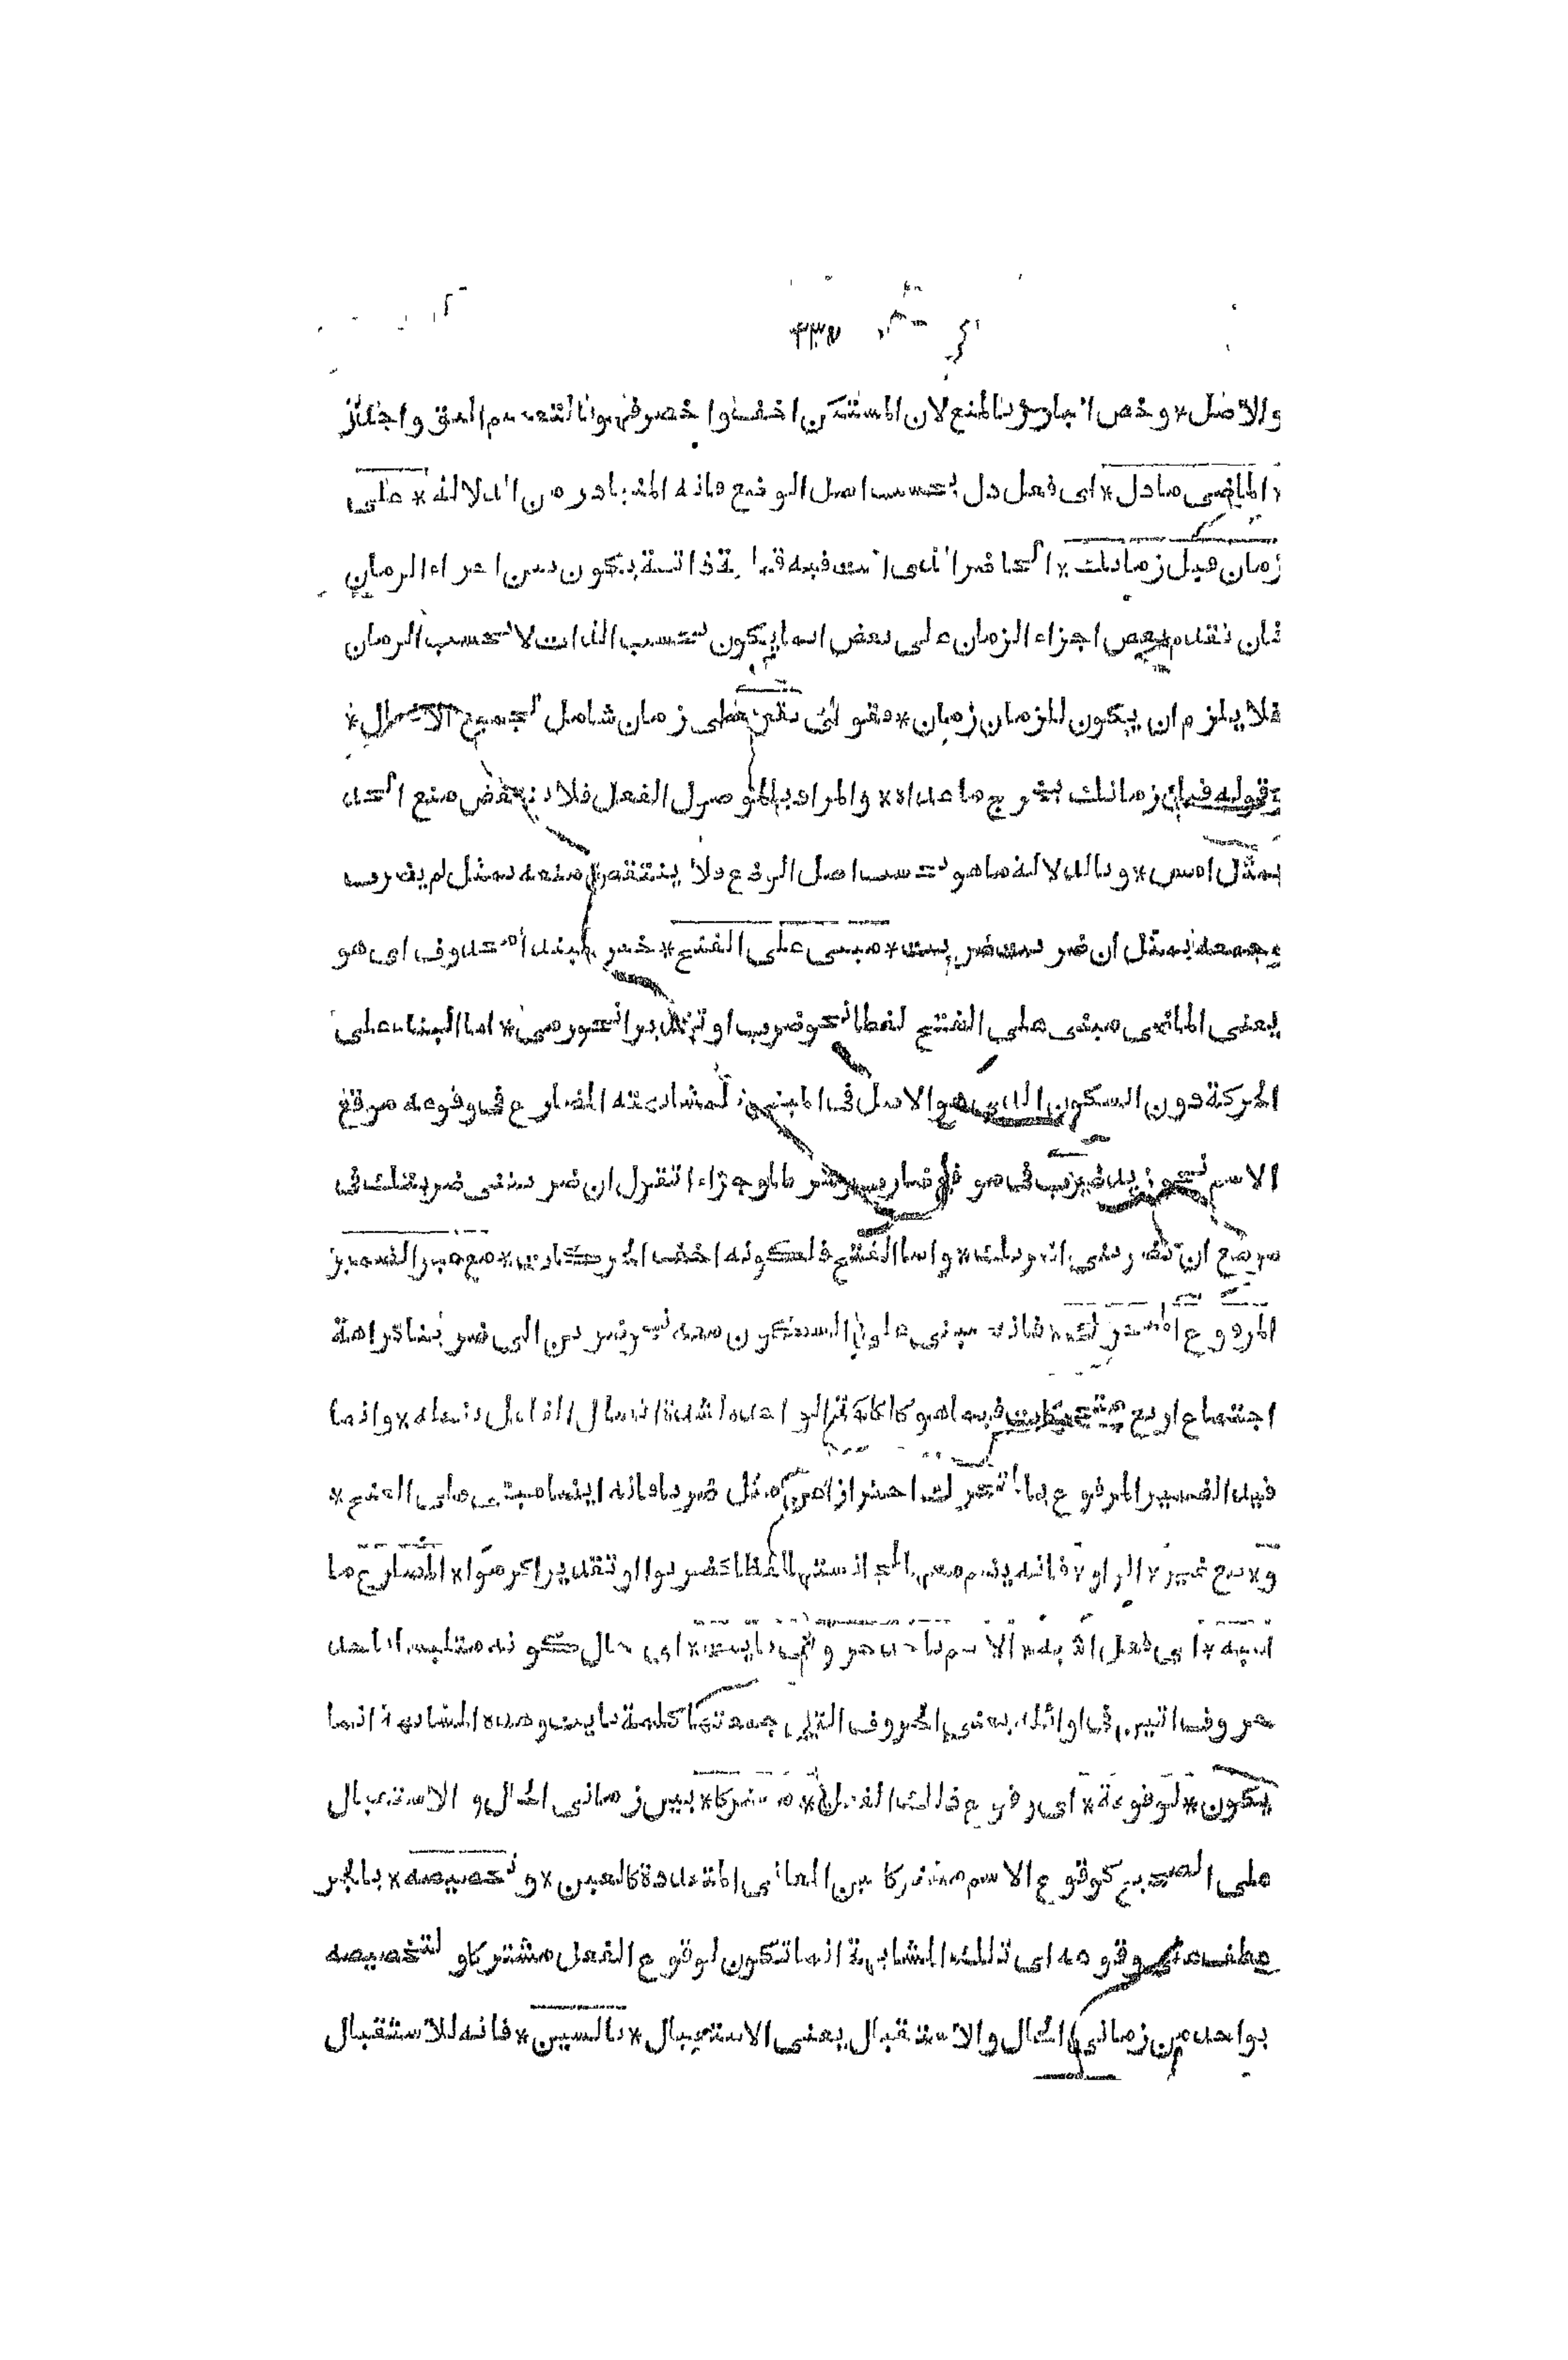 ٣٣٥
والاصل * وخص البارز بالمنع لان المستكن اخف واخصر فهو بالتعميم اليق واجدر
* الماضى مادل * اى فعل دل بحسب اصل الوضع فانه المتبادر من الدلالة * على
زمان قبل زمانك * الحاضر الذى انت فيه قبلية ذاتية يكون بين اجزاء الزمان
فان تقدم بعض اجزاء الزمان على بعض انما يكون بحسب الذات لا بحسب الزمان
فلا يلزم ان يكون للزمان زمان * فقوله على زمان شامل لجميع الافعال *
وقوله قبل زمانك يخرج ماعداه * والمراد بالموصول الفعل فلا ينتقض منع الحد
بمثل امس * وبالدلالة ماهو بحسب اصل الوضع فلا ينتقض منعه بمثل لم يضرب
وجمعه بمثل ان ضربت ضربت * مبنى على الفتح * خبر مبتدأ محذوف اى هو
يعنى الماضى مبنى على الفتح لفظا نحو ضرب او تقديرا نحو رمى * اما البناء على
الحركة دون السكون الذى هو الاصل فى المبنى فلمشابهته المضارع فى وقوعه موقع
الاسم نحو زيد ضرب فى موقع ضارب وشرطا وجزاء تقول ان ضربتنى ضربتك فى
موضع ان تضربنى اضربك * واما الفتح فلكونه اخف الحركات * مع غير الضمير
المرفوع المتحرك * فانه مبنى على السكون معه نحو ضربن الى ضربنا كراهة
اجتماع اربع متحركات فيما هو كالكلمة الواحدة لشدة اتصال الفاعل بفعله * وانما
قيد الضمير المرفوع بالمتحرك احترازا عن مثل ضربا فانه ايضا مبنى على الفتح *
و * مع غير * الواو * فانه يضم معها لمجانستها لفظا كضربوا او تقديرا كرموا * المضارع ما
اشبه * اى فعل اشبه * الاسم باحد حروف نأيت * اى حال كونه متلبسا باحد
حروف اتين فى اوائله يعنى الحروف التى جمعتها كلمة نأيت وهذه المشابهة انما
يكون * لوقوعه * اى وقوع ذلك الفعل * مشتركا * بين زمانى الحال والاستقبال
على الصحيح كوقوع الاسم مشتركا بين المعانى المتعددة كالعين * و تخصيصه * بالجر
عطف على وقوعه اى تلك المشابهة انما تكون لوقوع الفعل مشتركا و لتخصيصه
بواحد من زمانى الحال والاستقبال يعنى الاستقبال * بالسين * فانه للاستقبال